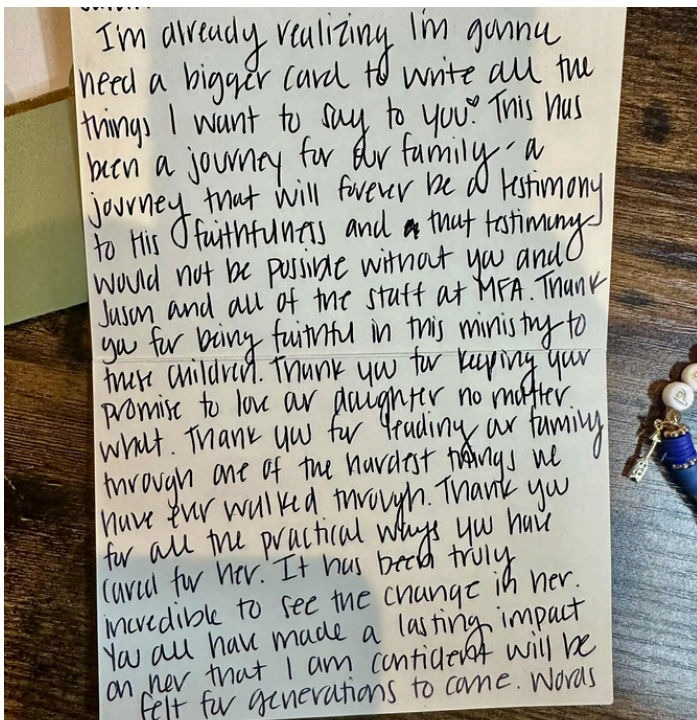 I'm already realizing I'm gonna
need a bigger card to write all the
things I want to say to you! This has
been a journey for our family - a
journey that will forever be a testimony
to His faithfulness and that testimony
would not be possible without you and
Jason and all of the staff at MFA. Thank
you for being faithful in this ministry to
these children. Thank you for keeping your
promise to love our daughter no matter
what. Thank you for leading our family
through one of the hardest things we
have ever walked through. Thank you
for all the practical ways you have
cared for her. It has been truly
incredible to see the change in her.
You all have made a lasting impact
on her that I am confident will be
felt for generations to come. Words